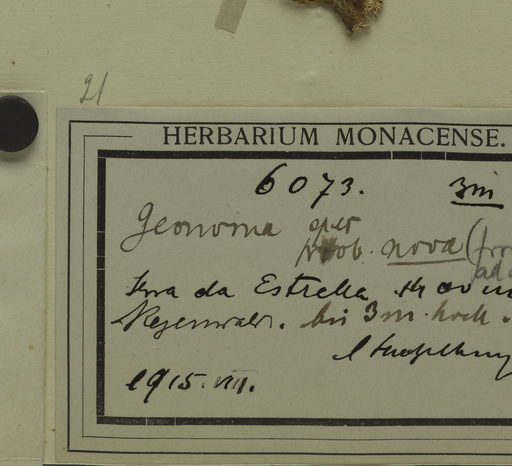 21
HERBARIUM MONACENSE.
6073. 3m
Geonoma spec
prob. nova
Serra da Estrella
Regenwald. bis 3m. hoch.
1915. VIII.